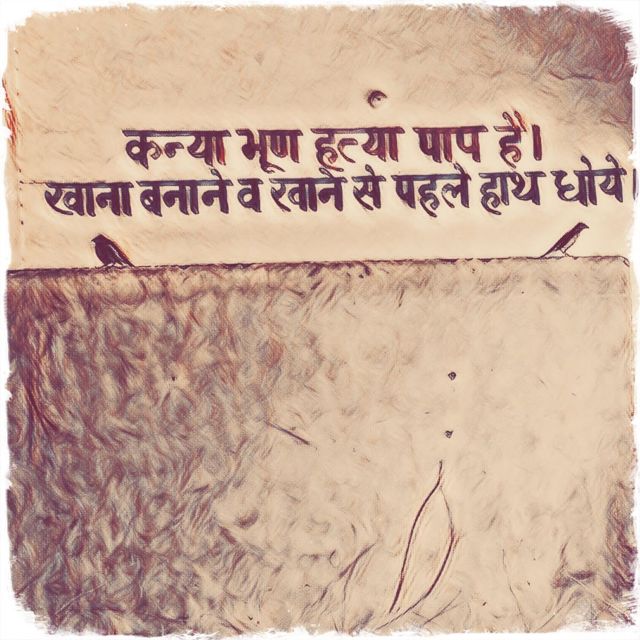 कन्या भूण हत्या पाप है।
खाना बनाने व खाने से पहले हाथ धोये।